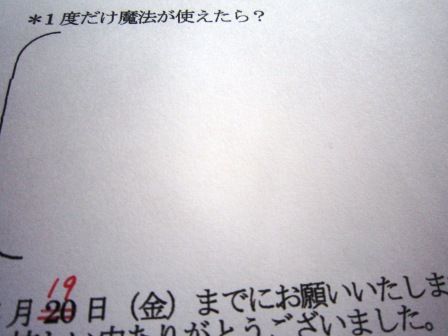 *1度だけ魔法が使えたら?
19
月20日(金)までにお願いいたしま
ありがとうございました。